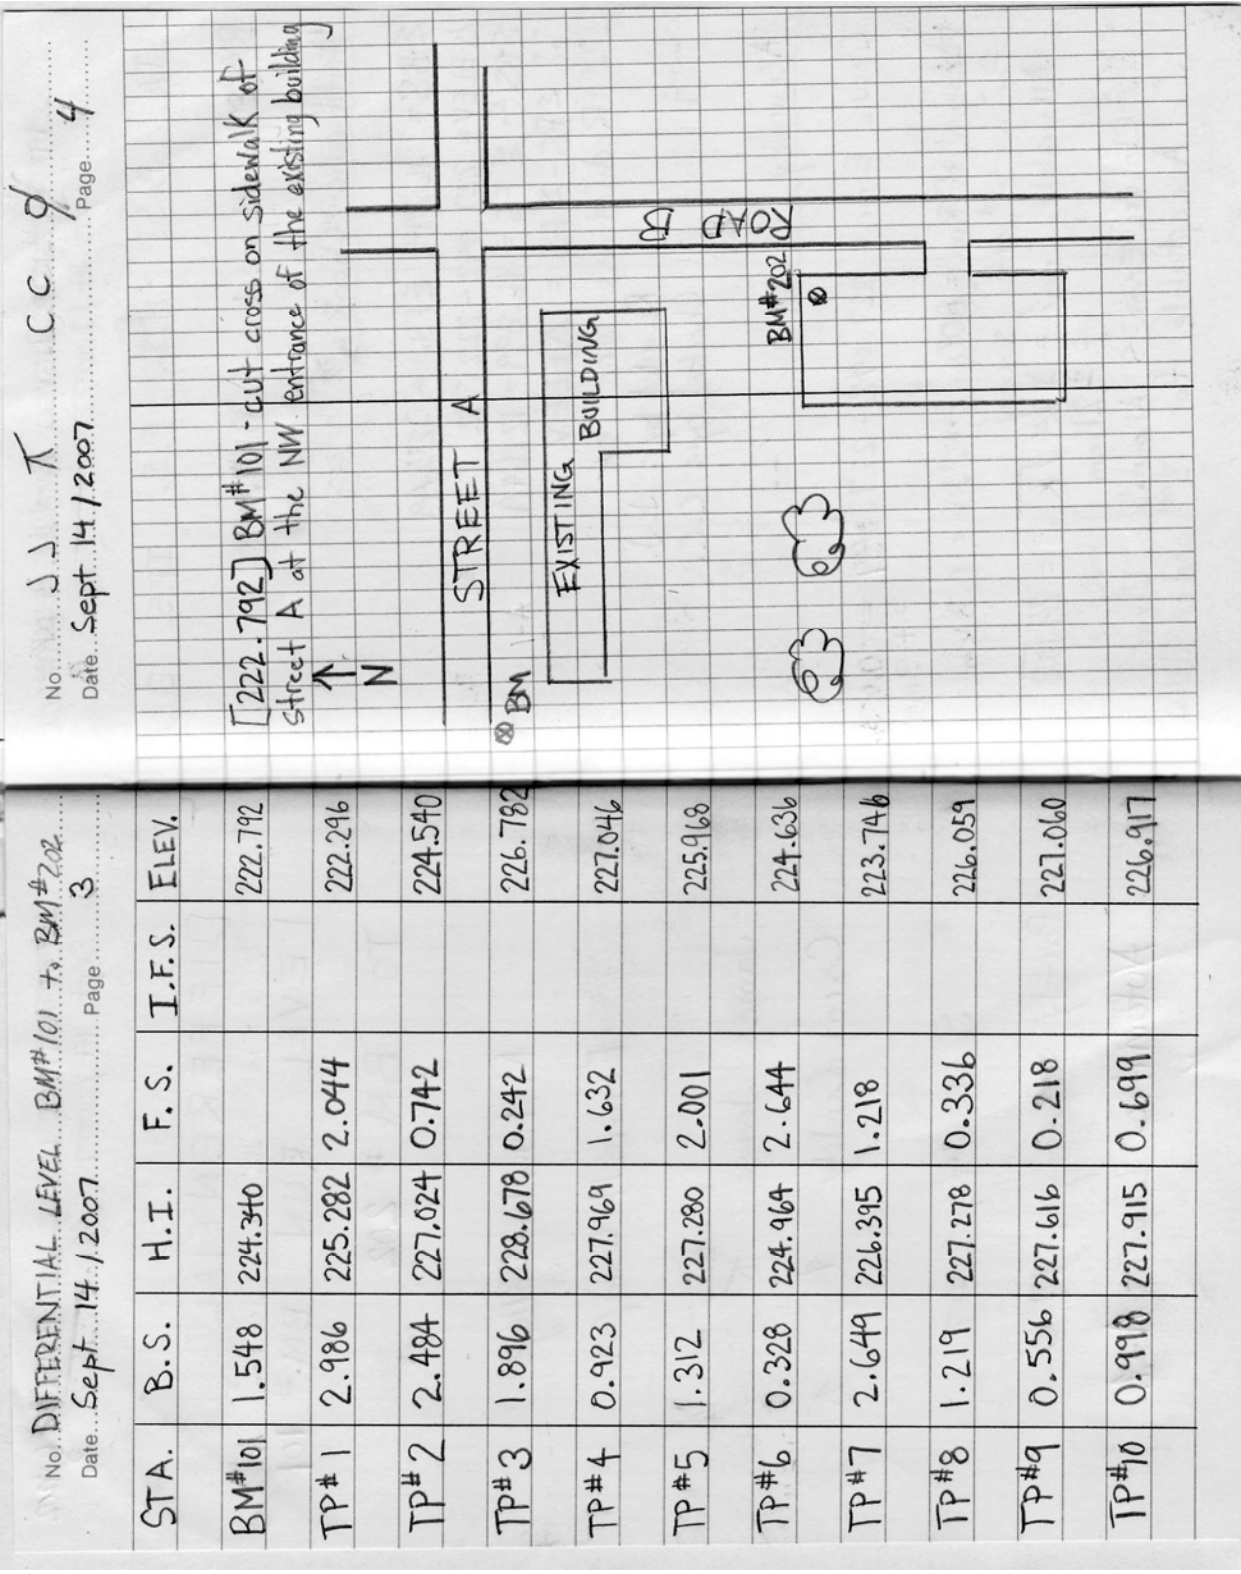 No. DIFFERENTIAL LEVEL BM#101 to BM#202
Date Sept 14 / 2007 Page 3
STA. B.S. H.I. F.S. I.F.S. ELEV.
BM#101 1.548 224.340 222.792
TP#1 2.986 225.282 2.044 222.296
TP#2 2.484 227.024 0.742 224.540
TP#3 1.896 228.678 0.242 226.782
TP#4 0.923 227.969 1.632 227.046
TP#5 1.312 227.280 2.001 225.968
TP#6 0.328 224.964 2.644 224.636
TP#7 2.649 226.395 1.218 223.746
TP#8 1.219 227.278 0.336 226.059
TP#9 0.556 227.616 0.218 227.060
TP#10 0.998 227.915 0.699 226.917
No. JJ ⊼ CC
Date Sept 14 / 2007 Page 4
[222.792] BM#101 - cut cross on sidewalk of
Street A at the NW entrance of the existing building
N
STREET A
BM
EXISTING
BUILDING
ROAD B
BM#202